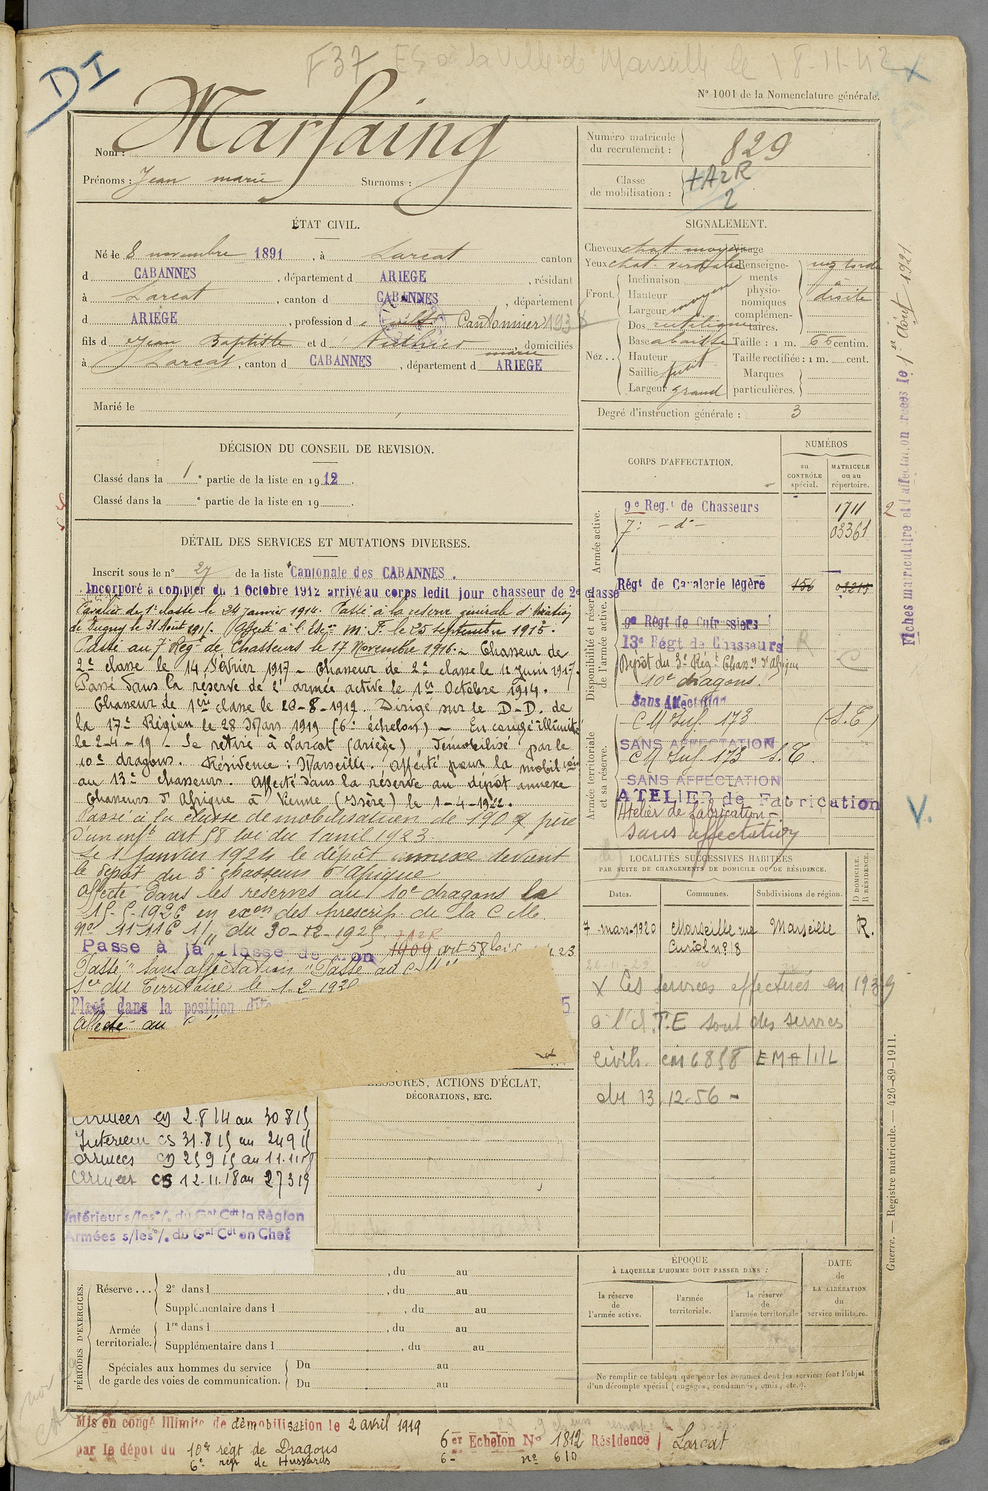 F37 ES à la Ville de Marseille le 18-11-42
DI
N° 1001 de la Nomenclature générale.
Nom : Marfaing
Prénoms : Jean marie Surnoms :
Numéro matricule du recrutement : 829
Classe de mobilisation :
ÉTAT CIVIL.
Né le 8 novembre 1891, à Larcat canton
d CABANNES, département d ARIEGE, résidant
à Larcat, canton d CABANNES, département
d ARIEGE, profession d Cantonnier
fils d Jean Baptiste et d marie, domiciliés
à Larcat, canton d CABANNES, département d ARIEGE
Marié le
SIGNALEMENT.
Cheveux chat. moyen Visage
Yeux chat. Renseignements physionomiques complémentaires.
Front. Inclinaison
Hauteur moyen
Largeur
Nez. Dos rectiligne
Base
Hauteur
Saillie petit
Largeur grand
droite
Taille : 1 m. 66 centim.
Taille rectifiée : 1 m. cent.
Marques particulières.
Degré d'instruction générale : 3
DÉCISION DU CONSEIL DE REVISION.
Classé dans la 1e partie de la liste en 1912.
Classé dans la e partie de la liste en 19
DÉTAIL DES SERVICES ET MUTATIONS DIVERSES.
Inscrit sous le n° 27 de la liste Cantonale des CABANNES.
Incorporé à compter du 1 Octobre 1912 arrivé au corps ledit jour chasseur de 2e classe
Cavalier de 1e classe le 24 janvier 1914. Passé à la réserve générale d'aviation
de Dugny le 31 Août 1915. Affecté à l'Es. M.F. le 25 septembre 1915.
Passé au 7e Rég. de Chasseurs le 17 Novembre 1916. – Chasseur de
2e classe le 14 Février 1917 – Chasseur de 2e classe le 11 Juin 1917.
Passé dans la réserve de l'armée active le 1er Octobre 1914.
Chasseur de 1ère classe le 20-8-1917. Dirigé sur le D.D. de
la 17e Région le 28 Mars 1919 (6e échelon) – En congé illimité
le 2-4-19 – Se retire à Larcat (Ariège), Démobilisé par le
10e dragons. Résidence : Marseille. Affecté pour la mobil.ion
au 13e chasseurs. Affecté dans la réserve au dépôt annexe
Chasseurs d'Afrique à Vienne (Isère) le 1-4-1922.
Passé à la classe de mobilisation de 1907 père
d'un enft art 58 loi du 1 avril 1923
Le 1 janvier 1924 le dépôt annexe devient
le dépôt du 3e chasseurs d'Afrique
affecté dans les réserves au 10e dragons le
15-5-1926 en exon des prescrip. de la C.M.
n° 11116 1/11 du 30-12-1925
Passé à la classe de mon 1909 art 58 loi
Passé "sans affectation" Passé au C
du Territoire le 1.2.1930
Placé dans la position dite
Affecté au
BLESSURES, ACTIONS D'ÉCLAT,
DÉCORATIONS, ETC.
Armées CD 2.8.14 au 30 8 15
Intérieur CS 31.8.15 au 24 9 15
Armées CD 25 9 15 au 11.11.18
Armées CS 12.11.18 au 27 3 19
Intérieur s/les o/. du Gal Cdt la Région
Armées s/les o/. du Gal Cdt en Chef
CORPS D'AFFECTATION.
NUMÉROS
au CONTRÔLE spécial.
MATRICULE ou au répertoire.
Armée active.
9e Reg.t de Chasseurs 1711
7e – d° – 03361
Disponibilité et réserve de l'armée active.
Régt de Cavalerie légère 156
9e Régt de Cuirassiers
13e Régt de Chasseurs R
Dépôt du 3e Régt Chass. d'Afrique
10e dragons.
Sans Affectation
Armée territoriale et sa réserve.
CM Inf. 173 (S.T)
SANS AFFECTATION
CM Inf. 173 S.T.
SANS AFFECTATION
ATELIER de Fabrication
Atelier de fabrication
Sans affectation
Fiches matriculaire et d'affectation créées le 1er Août 1921
LOCALITÉS SUCCESSIVES HABITÉES
PAR SUITE DE CHANGEMENTS DE DOMICILE OU DE RÉSIDENCE.
Dates. Communes. Subdivisions de région. D. DOMICILE. R. RÉSIDENCE.
7 mars 1920 Marseille rue Curiol n° 8 Marseille R.
X Les services effectués en 1939
à l'A.T.E sont des services
civils. cir 6858 EMA/1/L
du 13.12.56 –
V.
Guerre. — Registre matricule. — 426-89-1911.
PÉRIODES D'EXERCICES.
, du au
Réserve... 2e dans l , du au
Supplémentaire dans l , du au
Armée territoriale. 1re dans l , du au
Supplémentaire dans l , du au
Spéciales aux hommes du service de garde des voies de communication. Du au
Du au
ÉPOQUE
À LAQUELLE L'HOMME DOIT PASSER DANS :
la réserve de l'armée active.
l'armée territoriale.
la réserve de l'armée territoriale
DATE de LA LIBÉRATION du service militaire.
Ne remplir ce tableau que pour les hommes dont les services font l'objet
d'un décompte spécial (engagés, condamnés, omis, etc.).
Mis en congé illimité de démobilisation le 2 avril 1919
par le dépôt du 10e régt de Dragons 6er Echelon N° 1812 Résidence Larcat
6e régt de Hussards 6e n° 610